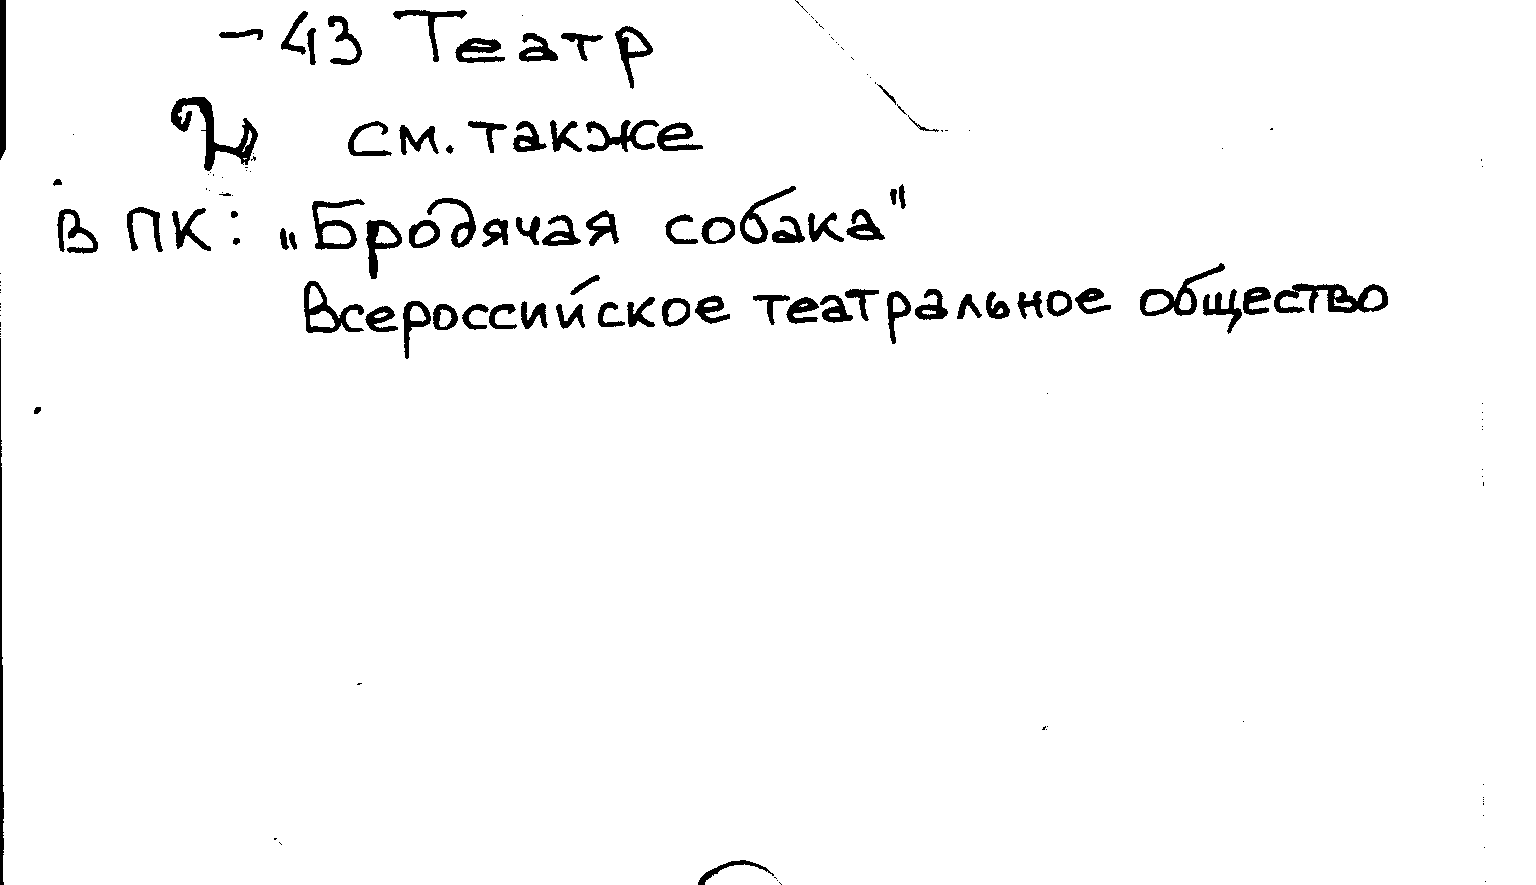 -43 Театр
см. также
в ПК: „Бродячая собака"
Всероссийское театральное общество